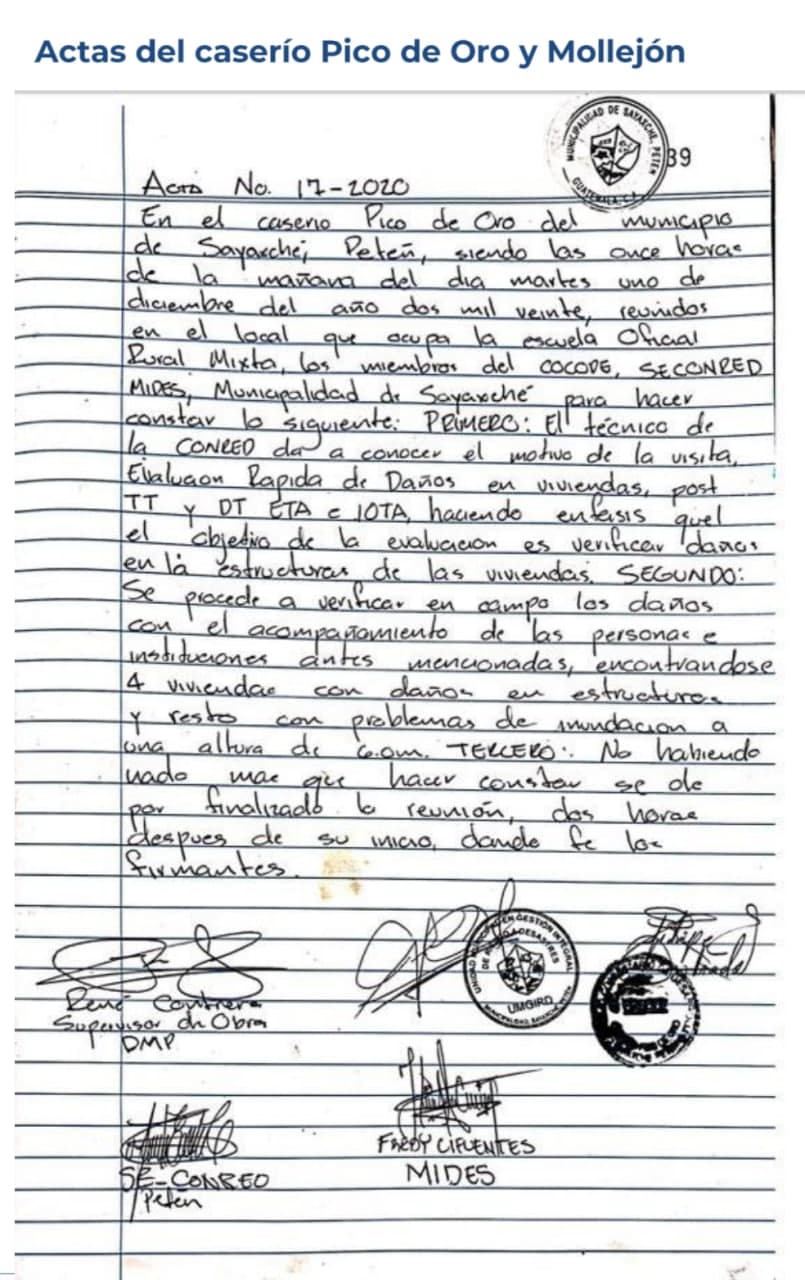 Actas del caserío Pico de Oro y Mollejón
MUNICIPALIDAD DE SAYAXCHE, PETEN
GUATEMALA, C.A.
39
Acta No. 17-2020
En el caserio Pico de Oro del municipio
de Sayaxché, Petén, siendo las once horas
de la mañana del dia martes uno de
diciembre del año dos mil veinte, reunidos
en el local que ocupa la escuela Oficial
Rural Mixta, los miembros del COCODE, SECONRED
MIDES, Municipalidad de Sayaxché para hacer
constar lo siguiente: PRIMERO: El técnico de
la CONRED da a conocer el motivo de la visita,
Evaluaon Rapida de Daños en viviendas, post
TT y DT ETA e IOTA, haciendo enfasis quel
el objetivo de la evaluacion es verificar daños
en la estructuras de las viviendas. SEGUNDO:
Se procede a verificar en campo los daños
con el acompañamiento de las personas e
instituciones antes mencionadas, encontrandose
4 viviendas con daños en estructuras
y resto con problemas de inundacion a
una altura de 6.0m. TERCERO: No habiendo
nado mas que hacer constar se da
por finalizado la reunión, dos horas
despues de su inicio, dando fe los
firmantes.
René Contrera
Supervisor de Obra
DMP
GESTION INTEGRAL
DESASTRES
UMGIRD
SE-CONRED
Petén
FREDY CIFUENTES
MIDES